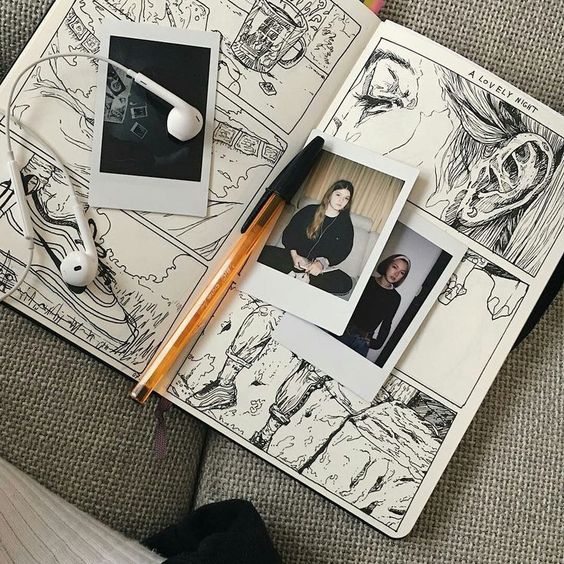 A LOVELY NIGHT